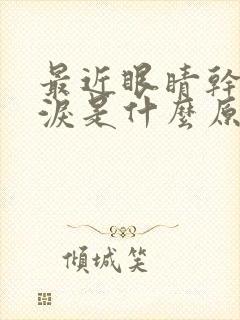 最近眼睛幹
淚是什麼原
傾城笑